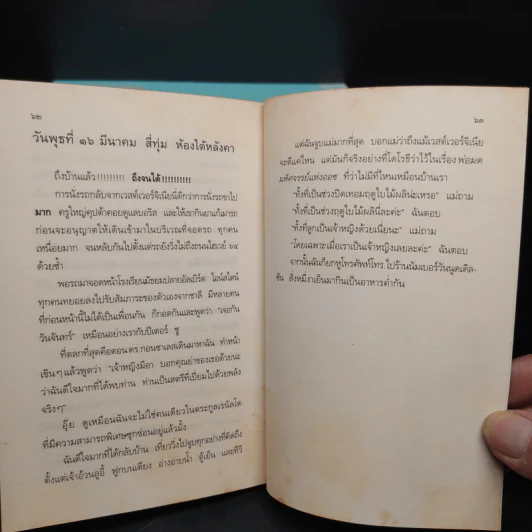 ๖๒
วันพุธที่ ๑๖ มีนาคม สี่ทุ่ม ห้องใต้หลังคา
ถึงบ้านแล้ว!!!!!!!!! ถึงจนได้!!!!!!!!!!
การนั่งรถกลับจากเวสต์เวอร์จิเนียนี่ดีกว่าการนั่งรถขาไป
มาก ครูใหญ่คุปต้าคอยดูแลบอริส และให้เขากินยาแก้เมารถ
ก่อนจะอนุญาตให้เดินเข้ามาในบริเวณที่จอดรถ ทุกคน
เหนื่อยมาก จนหลับกันไปตั้งแต่รถยังวิ่งไม่ถึงถนนไฮเวย์ ๖๔
ด้วยซ้ำ
พอรถมาจอดหน้าโรงเรียนมัธยมปลายอัลเบิร์ต ไอน์สไตน์
ทุกคนทยอยลงไปรับสัมภาระของตัวเองจากชาลี มีหลายคน
ที่ก่อนหน้านี้ไม่ได้เป็นเพื่อนกัน ก็กอดกันและพูดว่า "เจอกัน
วันจันทร์" เหมือนอย่างเรากับปีเตอร์ ซู
ที่ตลกที่สุดคือตอน ดร.กอนซาเลสเดินมาหาฉัน ทำหน้า
เขินๆ แล้วพูดว่า "เจ้าหญิงมีอา บอกคุณย่าของเธอด้วยนะ
ว่าฉันดีใจมากที่ได้พบท่าน ท่านเป็นสตรีที่เปี่ยมไปด้วยพลัง
จริงๆ"
อุ๊ย ดูเหมือนฉันจะไม่ใช่คนเดียวในตระกูลเรนัลโด
ที่มีความสามารถพิเศษซุกซ่อนอยู่แล้วมั้ง
ฉันดีใจมากที่ได้กลับบ้าน เที่ยววิ่งไปจูบทุกอย่างที่คิดถึง
ตั้งแต่เจ้าอ้วนลูอี้ ฟูกบนเตียง อ่างอาบน้ำ ตู้เย็น และทีวี
๖๓
แต่ฉันจูบแม่มากที่สุด บอกแม่ว่าถึงแม้เวสต์เวอร์จิเนีย
จะดีแค่ไหน แต่มันก็จริงอย่างที่โดโรธีว่าไว้ในเรื่อง พ่อมด
มหัศจรรย์แห่งออซ ที่ว่าไม่มีที่ไหนเหมือนบ้านเรา
"ทั้งที่เป็นช่วงปิดเทอมฤดูใบไม้ผลิน่ะเหรอ" แม่ถาม
"ทั้งที่เป็นช่วงฤดูใบไม้ผลินี่ละค่ะ" ฉันตอบ
"ทั้งที่ลูกเป็นเจ้าหญิงด้วยเนี่ยนะ" แม่ถาม
"โดยเฉพาะเมื่อเราเป็นเจ้าหญิงเลยละค่ะ" ฉันตอบ
จากนั้นฉันก็ยกหูโทรศัพท์โทร ไปร้านนัมเบอร์วันนูดเดิล-
ซัน สั่งหมี่งาเย็นมากินเป็นอาหารค่ำกัน